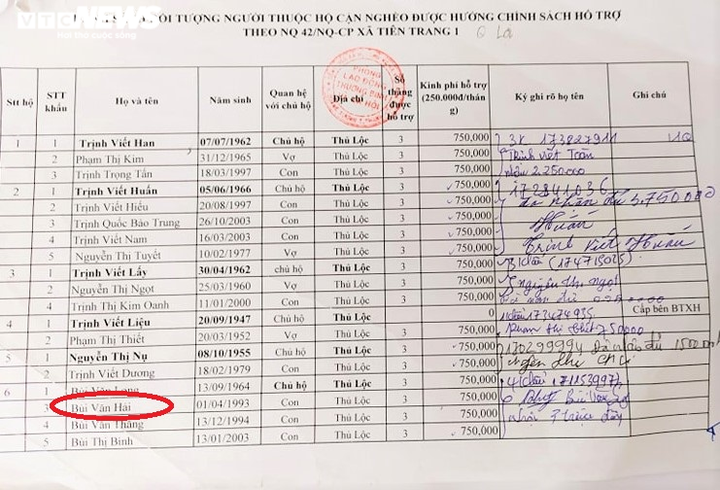 VTC NEWS
TƯỢNG NGƯỜI THUỘC HỘ CẬN NGHÈO ĐƯỢC HƯỞNG CHÍNH SÁCH HỖ TRỢ
THEO NQ 42/NQ-CP XÃ TIÊN TRANG 1
Stt hộ STT khẩu Họ và tên Năm sinh Quan hệ với chủ hộ Địa chỉ Số tháng được hỗ trợ Kinh phí hỗ trợ (250.000đ/tháng) Ký ghi rõ họ tên Ghi chú
1 1 Trịnh Viết Han 07/07/1962 Chủ hộ Thủ Lộc 3 750,000
2 Phạm Thị Kim 31/12/1965 Vợ Thủ Lộc 3 750,000 Trịnh Viết Toàn
3 Trịnh Trọng Tấn 18/03/1997 Con Thủ Lộc 3 750,000 2.250.000
2 1 Trịnh Viết Huấn 05/06/1966 Chủ hộ Thủ Lộc 3 750,000 172841036
2 Trịnh Viết Hiếu 20/08/1997 Con Thủ Lộc 3 750,000
3 Trịnh Quốc Bảo Trung 26/10/2003 Con Thủ Lộc 3 750,000
4 Trịnh Viết Nam 16/03/2003 Con Thủ Lộc 3 750,000 Huấn
5 Nguyễn Thị Tuyết 10/02/1977 Vợ Thủ Lộc 3 750,000 Trịnh Viết Huấn
3 1 Trịnh Viết Lấy 30/04/1962 chủ hộ Thủ Lộc 3 750,000
2 Nguyễn Thị Ngọt 25/03/1960 Vợ Thủ Lộc 3 750,000 Nguyễn Thị Ngọt
3 Trịnh Thị Kim Oanh 11/01/2000 Con Thủ Lộc 3 750,000
4 1 Trịnh Viết Liệu 20/09/1947 Chủ hộ Thủ Lộc 3 0 Cấp bên BTXH
2 Phạm Thị Thiết 20/03/1952 Vợ Thủ Lộc 3 750,000
5 1 Nguyễn Thị Nụ 08/10/1955 Chủ hộ Thủ Lộc 3 750,000
2 Trịnh Viết Dương 18/02/1979 Con Thủ Lộc 3 750,000
6 1 Bùi Văn Long 13/09/1964 Chủ hộ Thủ Lộc 3 750,000
3 Bùi Văn Hải 01/04/1993 Con Thủ Lộc 3 750,000
4 Bùi Văn Thắng 13/12/1994 Con Thủ Lộc 3 750,000
5 Bùi Thị Bình 13/01/2003 Con Thủ Lộc 3 750,000